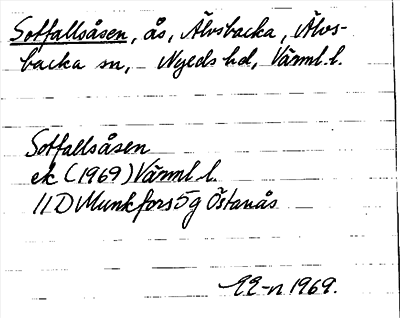 Sotfallsåsen, ås, Älvsbacka, Älvs-
backa sn, Nyeds hd, Värml. l.
Sotfallsåsen
ek (1969) Värml l.
11D Munkfors 5g Östanås
1969.